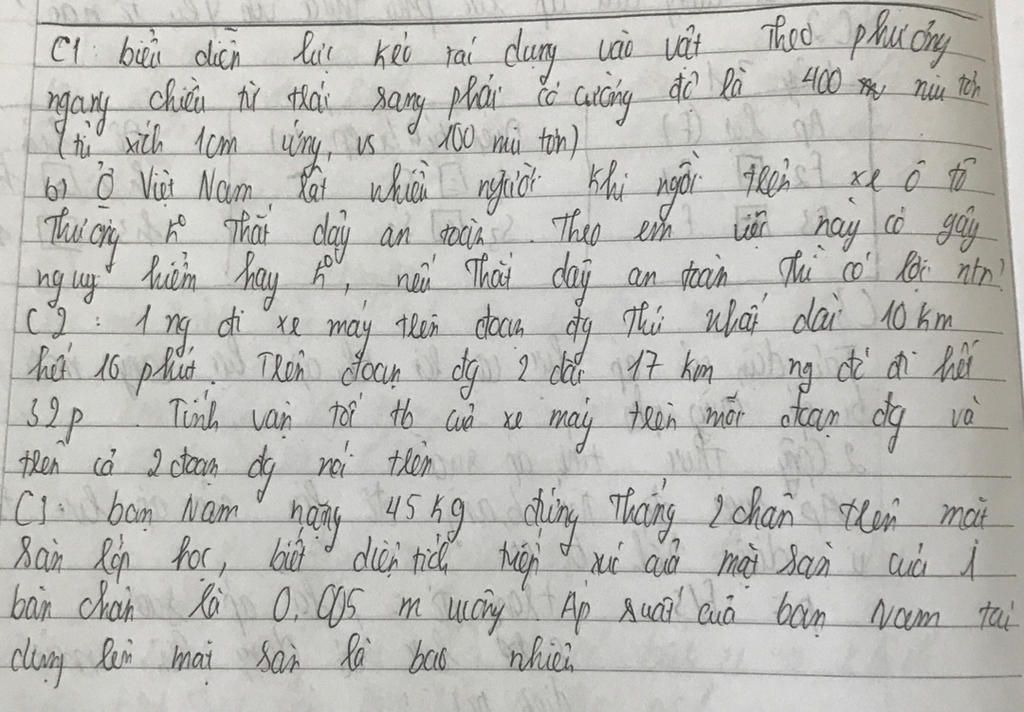 C1: biểu diễn lực kéo tái dụng vào vật theo phương
ngang chiều từ trái sang phải có cường độ là 400 niu tơn
(tỉ xích 1cm ứng, vs 100 niu tơn)
b) Ở Việt Nam rất nhiều người khi ngồi trên xe ô tô
thường k° thắt dây an toàn. Theo em việc này có gây
nguy hiểm hay k°, nếu thắt dây an toàn thì có lợi ntn?
C2: 1 ng đi xe máy trên đoạn đg thứ nhất dài 10 km
hết 16 phút. Trên đoạn đg 2 dài 17 km ng đó đi hết
32p. Tính vận tốc tb của xe máy trên mỗi đoạn đg và
trên cả 2 đoạn đg nói trên
C3: bạn Nam nặng 45 kg đứng thẳng 2 chân trên mặt
sàn lớp học, biết diện tích tiếp xúc của mặt sàn của 1
bàn chân là 0,005 m vuông. Áp suất của bạn Nam tác
dụng lên mặt sàn là bao nhiêu